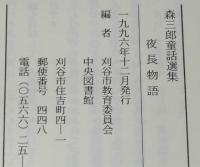 森三郎童話選集
夜長物語
一九九六年十二月発行
編者 刈谷市教育委員会
中央図書館
刈谷市住吉町四―一
郵便番号 四四八
電話(〇五六六)二五―